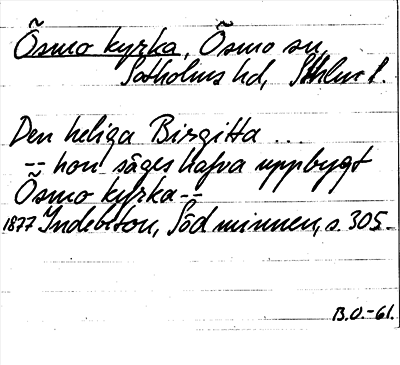 Ösmo kyrka, Ösmo sn,
Sotholms hd, Sthlms l.
Den heliga Birgitta ...
-- hon säges hafva uppbygt
Ösmo kyrka --
1877 Indebetou, Söd minnen, s. 305
B.O. -61.